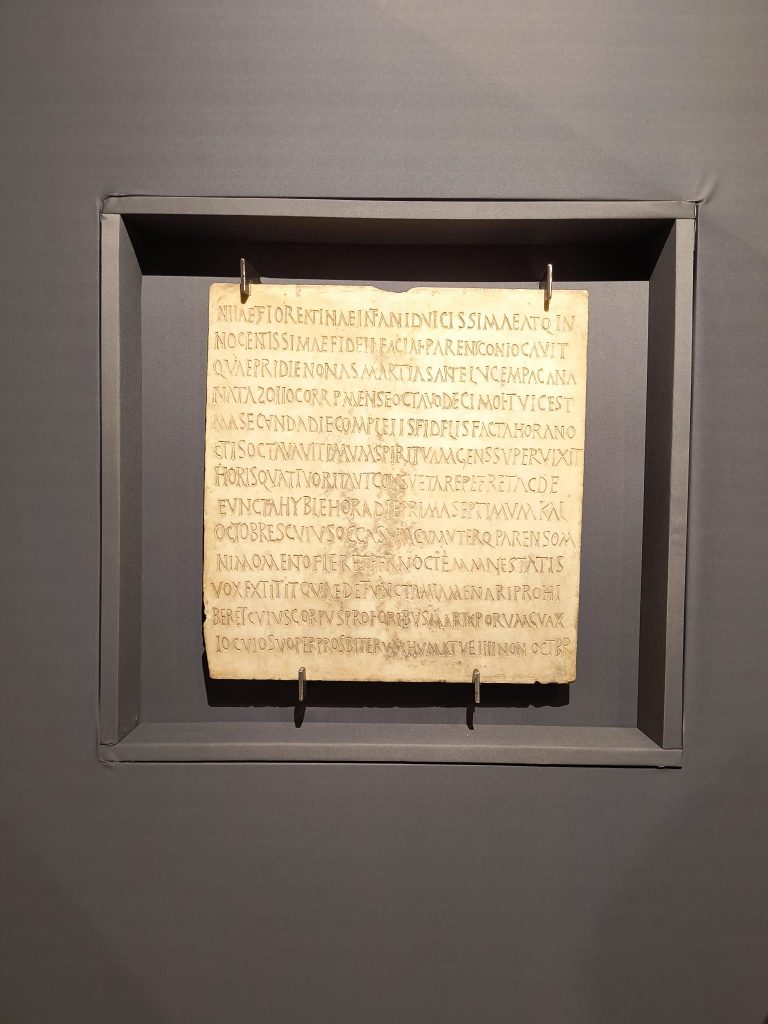 IVLIAE FLORENTINAE INFANTI DVLCISSIMAE ATQ IN
NOCENTISSIMAE FIDELI FACTAE PARENS CONLOCAVIT
QVAE PRIDIE NONAS MARTIAS ANTE LVCEM PAGANA
NATA ZOILO CORR P MENSE OCTAVO DECIMO ET VICES
MA SECVNDA DIE COMPLETIS FIDELIS FACTA HORA NO
CTIS OCTAVA VLTIMVM SPIRITVM AGENS SVPERVIXIT
HORIS QVATTVOR ITA VT CONSVETA REPETERET AC DE
FVNCTA HYBLE HORA DIE PRIMA SEPTIMVM KAL
OCTOBRES CVIVS OCCASVM CVM VTERQ PARENS OM
NI MOMENTO FLERET PER NOCTEM MAIESTATIS
VOX EXTITIT QVAE DEFVNCTAM LAMENTARI PROHI
BERET CVIVS CORPVS PRO FORIBVS MARTYRORVM
LOCVLO SVO PER PROSBITERVM HVMATV E IIII NON OCTBR